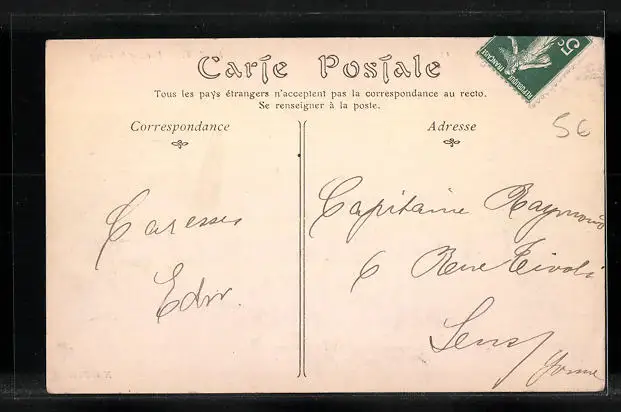 Carte Postale
Tous les pays étrangers n'acceptent pas la correspondance au recto.
Se renseigner à la poste.
Correspondance
Adresse
5c
REPUBLIQUE FRANÇAISE
5€
Caresses
Capitaine Raymond
6 Rue Tivoli
Sens
Yonne